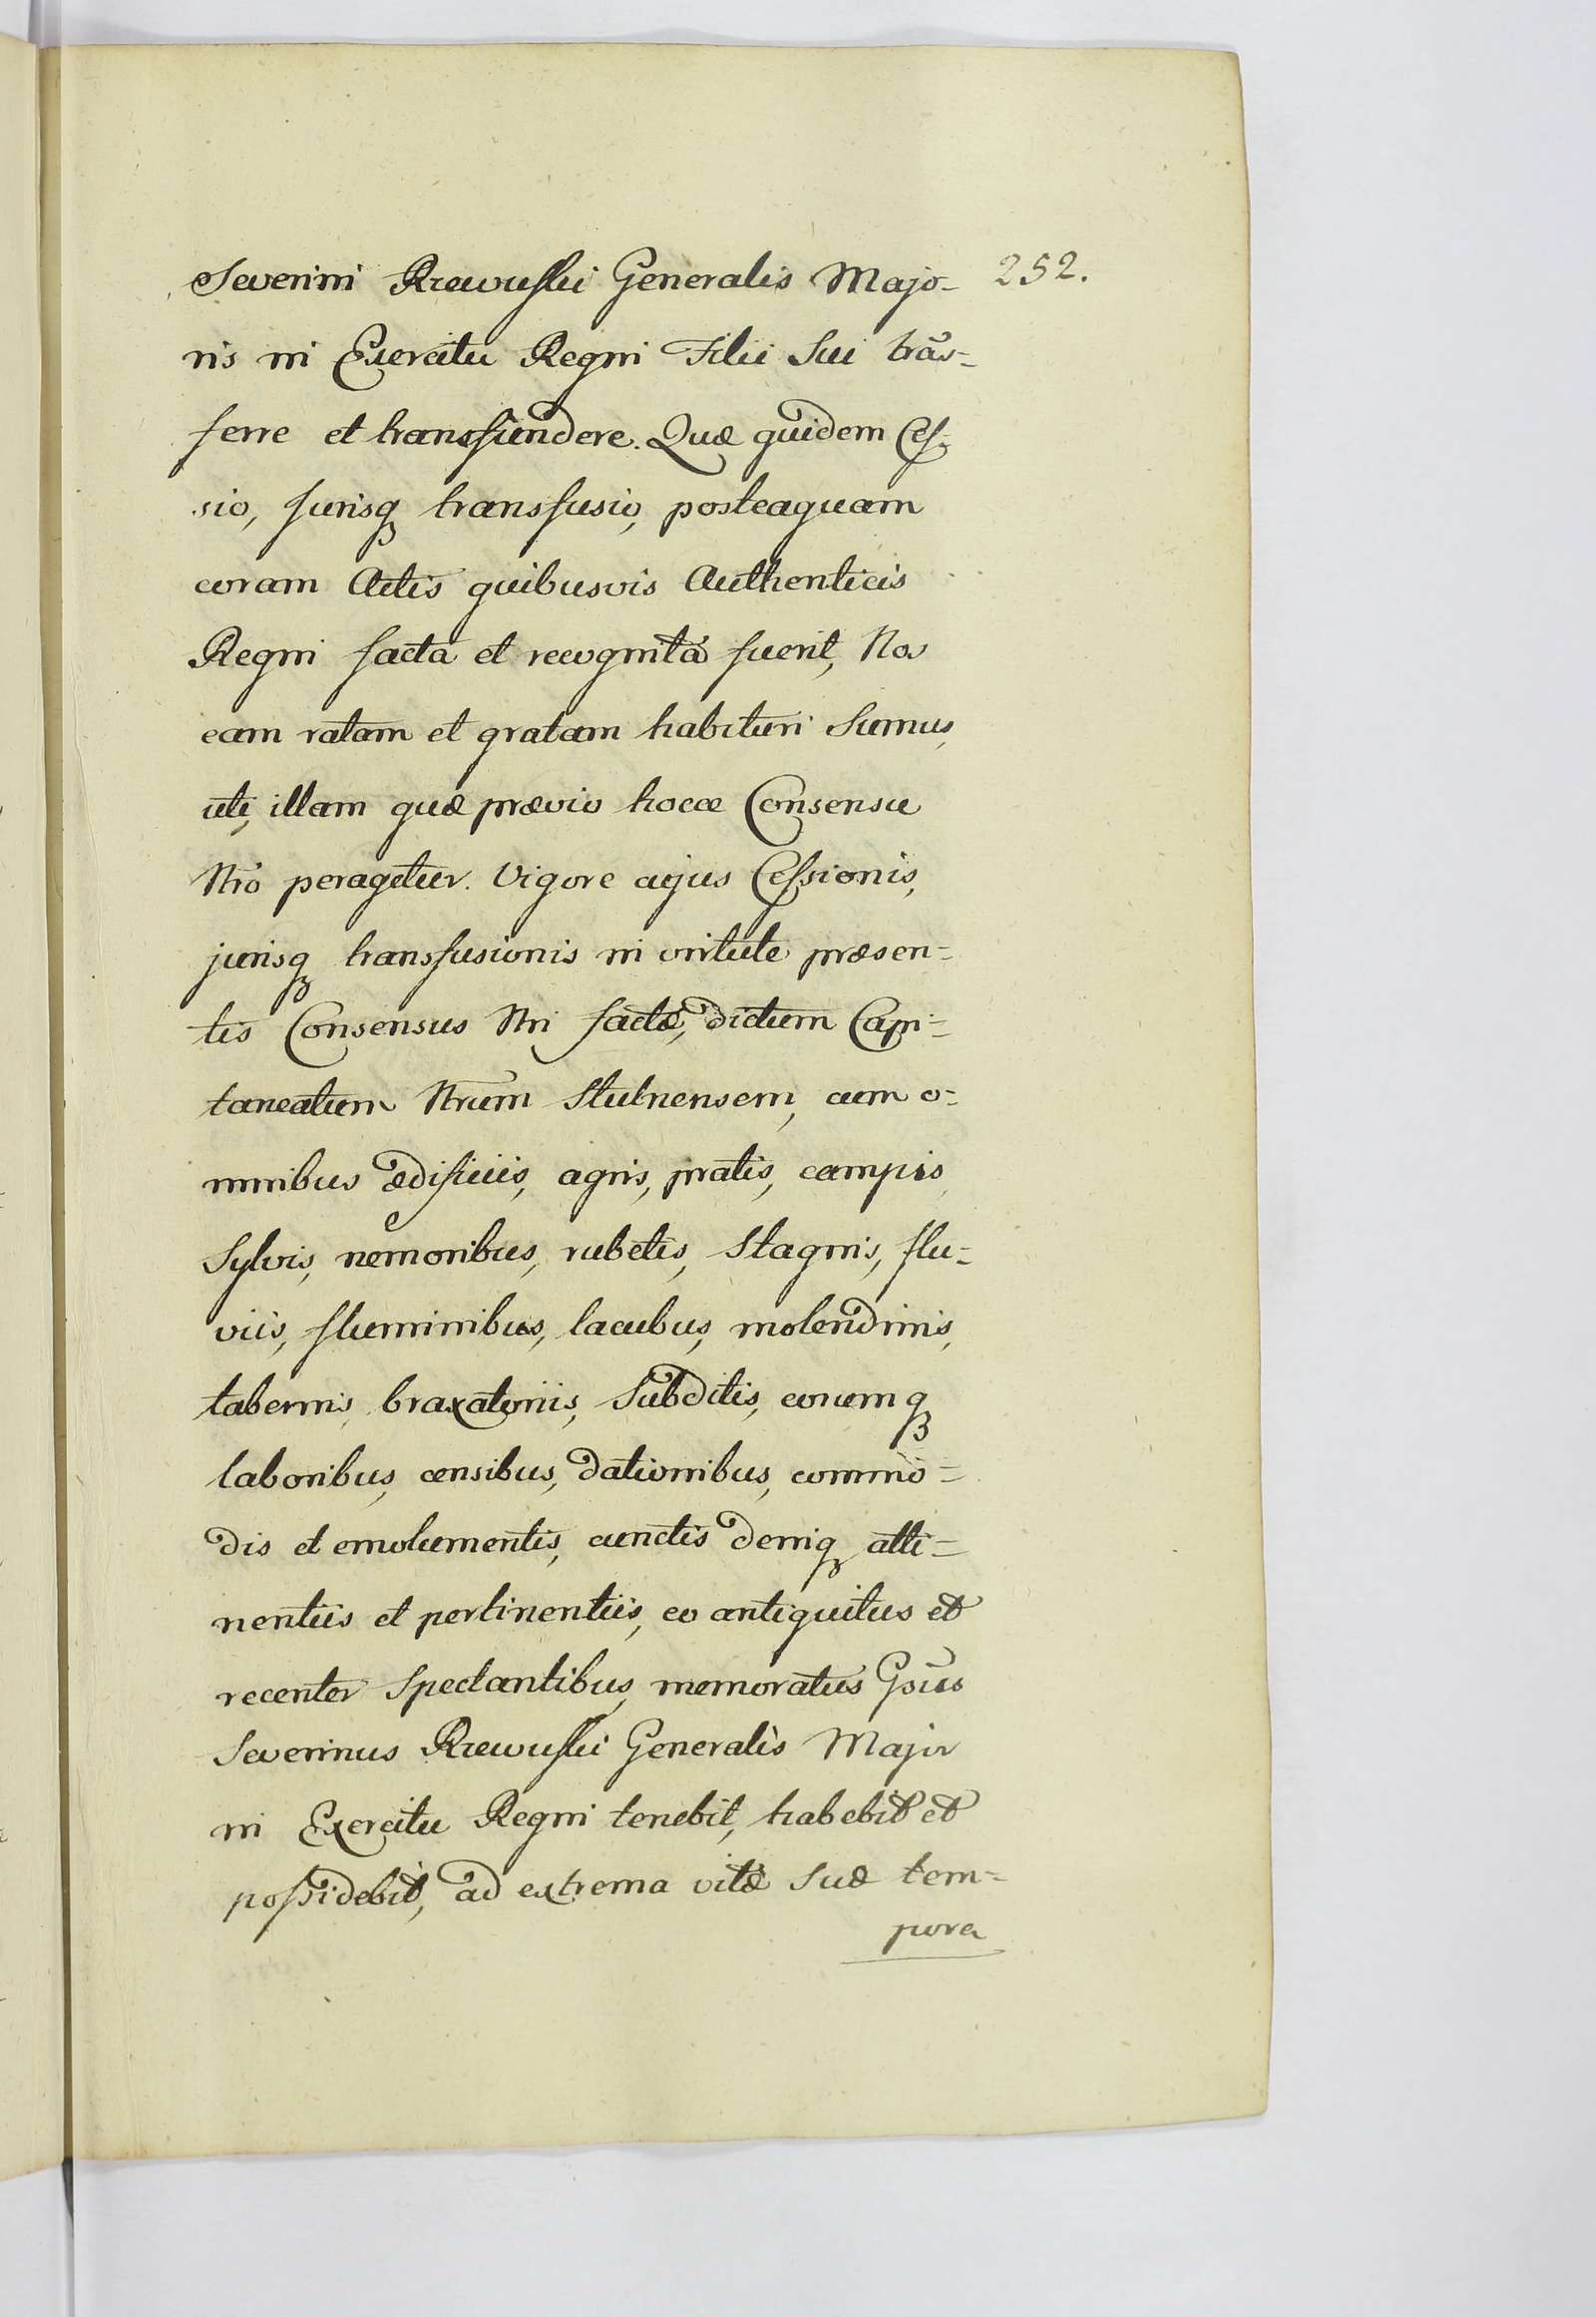 Severini Rzewuski Generalis Majo- 252.
ris in Exercitu Regni Filii Sui trãs-
ferre et transfundere. Quæ quidem Ces-
sio, Jurisq transfusio, posteaquam
coram Actis quibusvis Authenticis
Regni facta et recognita fuerit, Nos
eam ratam et gratam habituri Sumus,
uti, illam quæ prævio hocce Consensu
Nrō peragetur. Vigore cujus Cessionis,
jurisq transfusionis in viritute præsen-
tis Consensus Nri factæ, dictum Capi-
taneatum Nrum Stulnensem, cum o-
mnibus ædificiis, agris, pratis, campis,
Sylvis, nemoribus, rubetis, Stagnis, flu-
viis, fluminibus, lacubus, molendinis,
tabernis, braxatoriis, Subditis, eorumq
laboribus, censibus, dationibus, commo-
dis et emolumentis, cunctis deniq atti-
nentiis et pertinentiis, eo antiquitus et
recenter Spectantibus, memoratus Gsus
Severinus Rzewuski Generalis Major
in Exercitu Regni tenebit, habebit et
possidebit, ad extrema vitæ Suæ tem-
pora